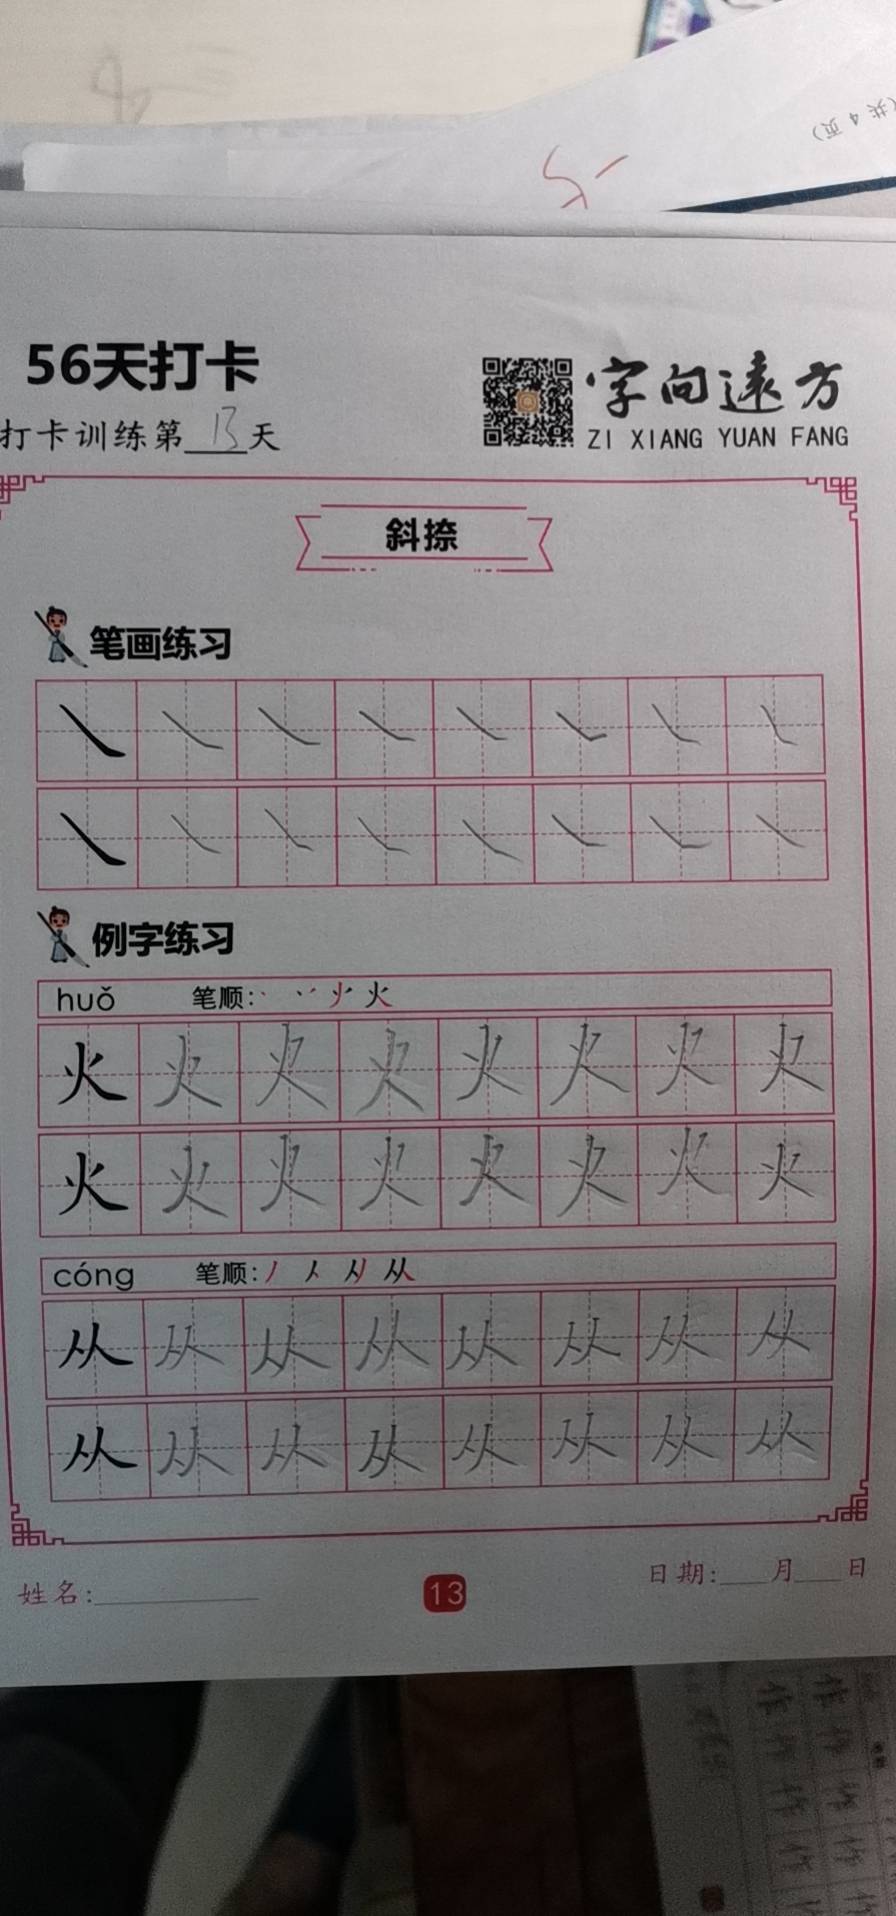 (共 4 页)
56天打卡
字向远方
打卡训练第13天
ZI XIANG YUAN FANG
斜捺
笔画练习
例字练习
huǒ 笔顺:
火 火 火 火 火 火 火 火
火 火 火 火 火 火 火 火
cóng 笔顺:
从 从 从 从 从 从 从 从
从 从 从 从 从 从 从 从
姓名:
13
日期:___月___日